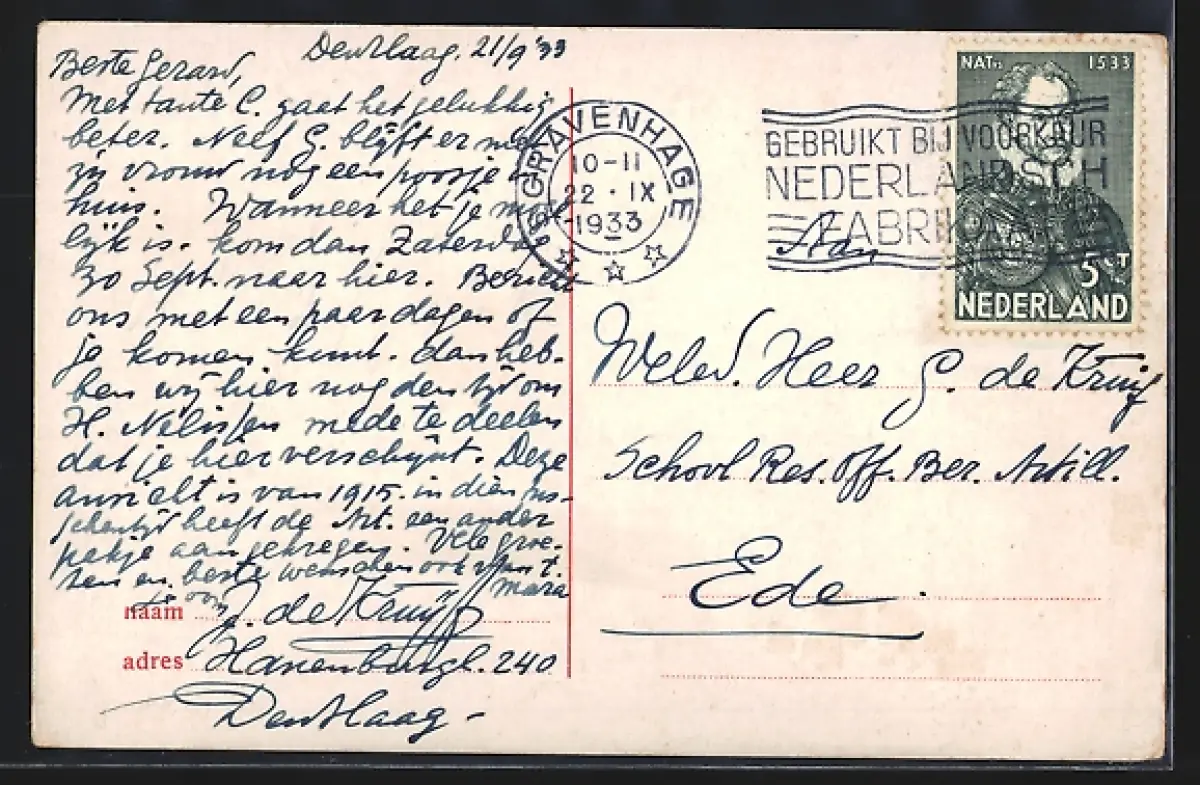 Den Haag. 21/9 '33
Beste Gerard,
Met tante C. gaat het gelukkig
beter. Neef G. blijft er met
zijn vrouw nog een poosje in
huis. Wanneer het je moge-
lijk is. kom dan Zaterdag
30 Sept. naar hier. Bericht
ons met een paar dagen of
je komen kunt. dan heb-
ben wij hier nog den tijd om
H. Nelissen mede te deelen
dat je hier verschijnt. Deze
ansicht is van 1915. in dien tus-
schentijd heeft de Art. een ander
pakje aangekregen. Vele groe-
ten en beste wenschen ook van t.
Mara
je oom
naam J. de Kruyff
adres Hanenburgl. 240
Den Haag -
'S GRAVENHAGE
10-11
22 · IX
1933
GEBRUIKT BIJ VOORKEUR
NEDERLANDSCH
FABRIKAAT
NAT: 1533
5 CT
NEDERLAND
Aan
Weled. Heer G. de Kruyff
School Res. Off. Ber. Artill.
Ede.